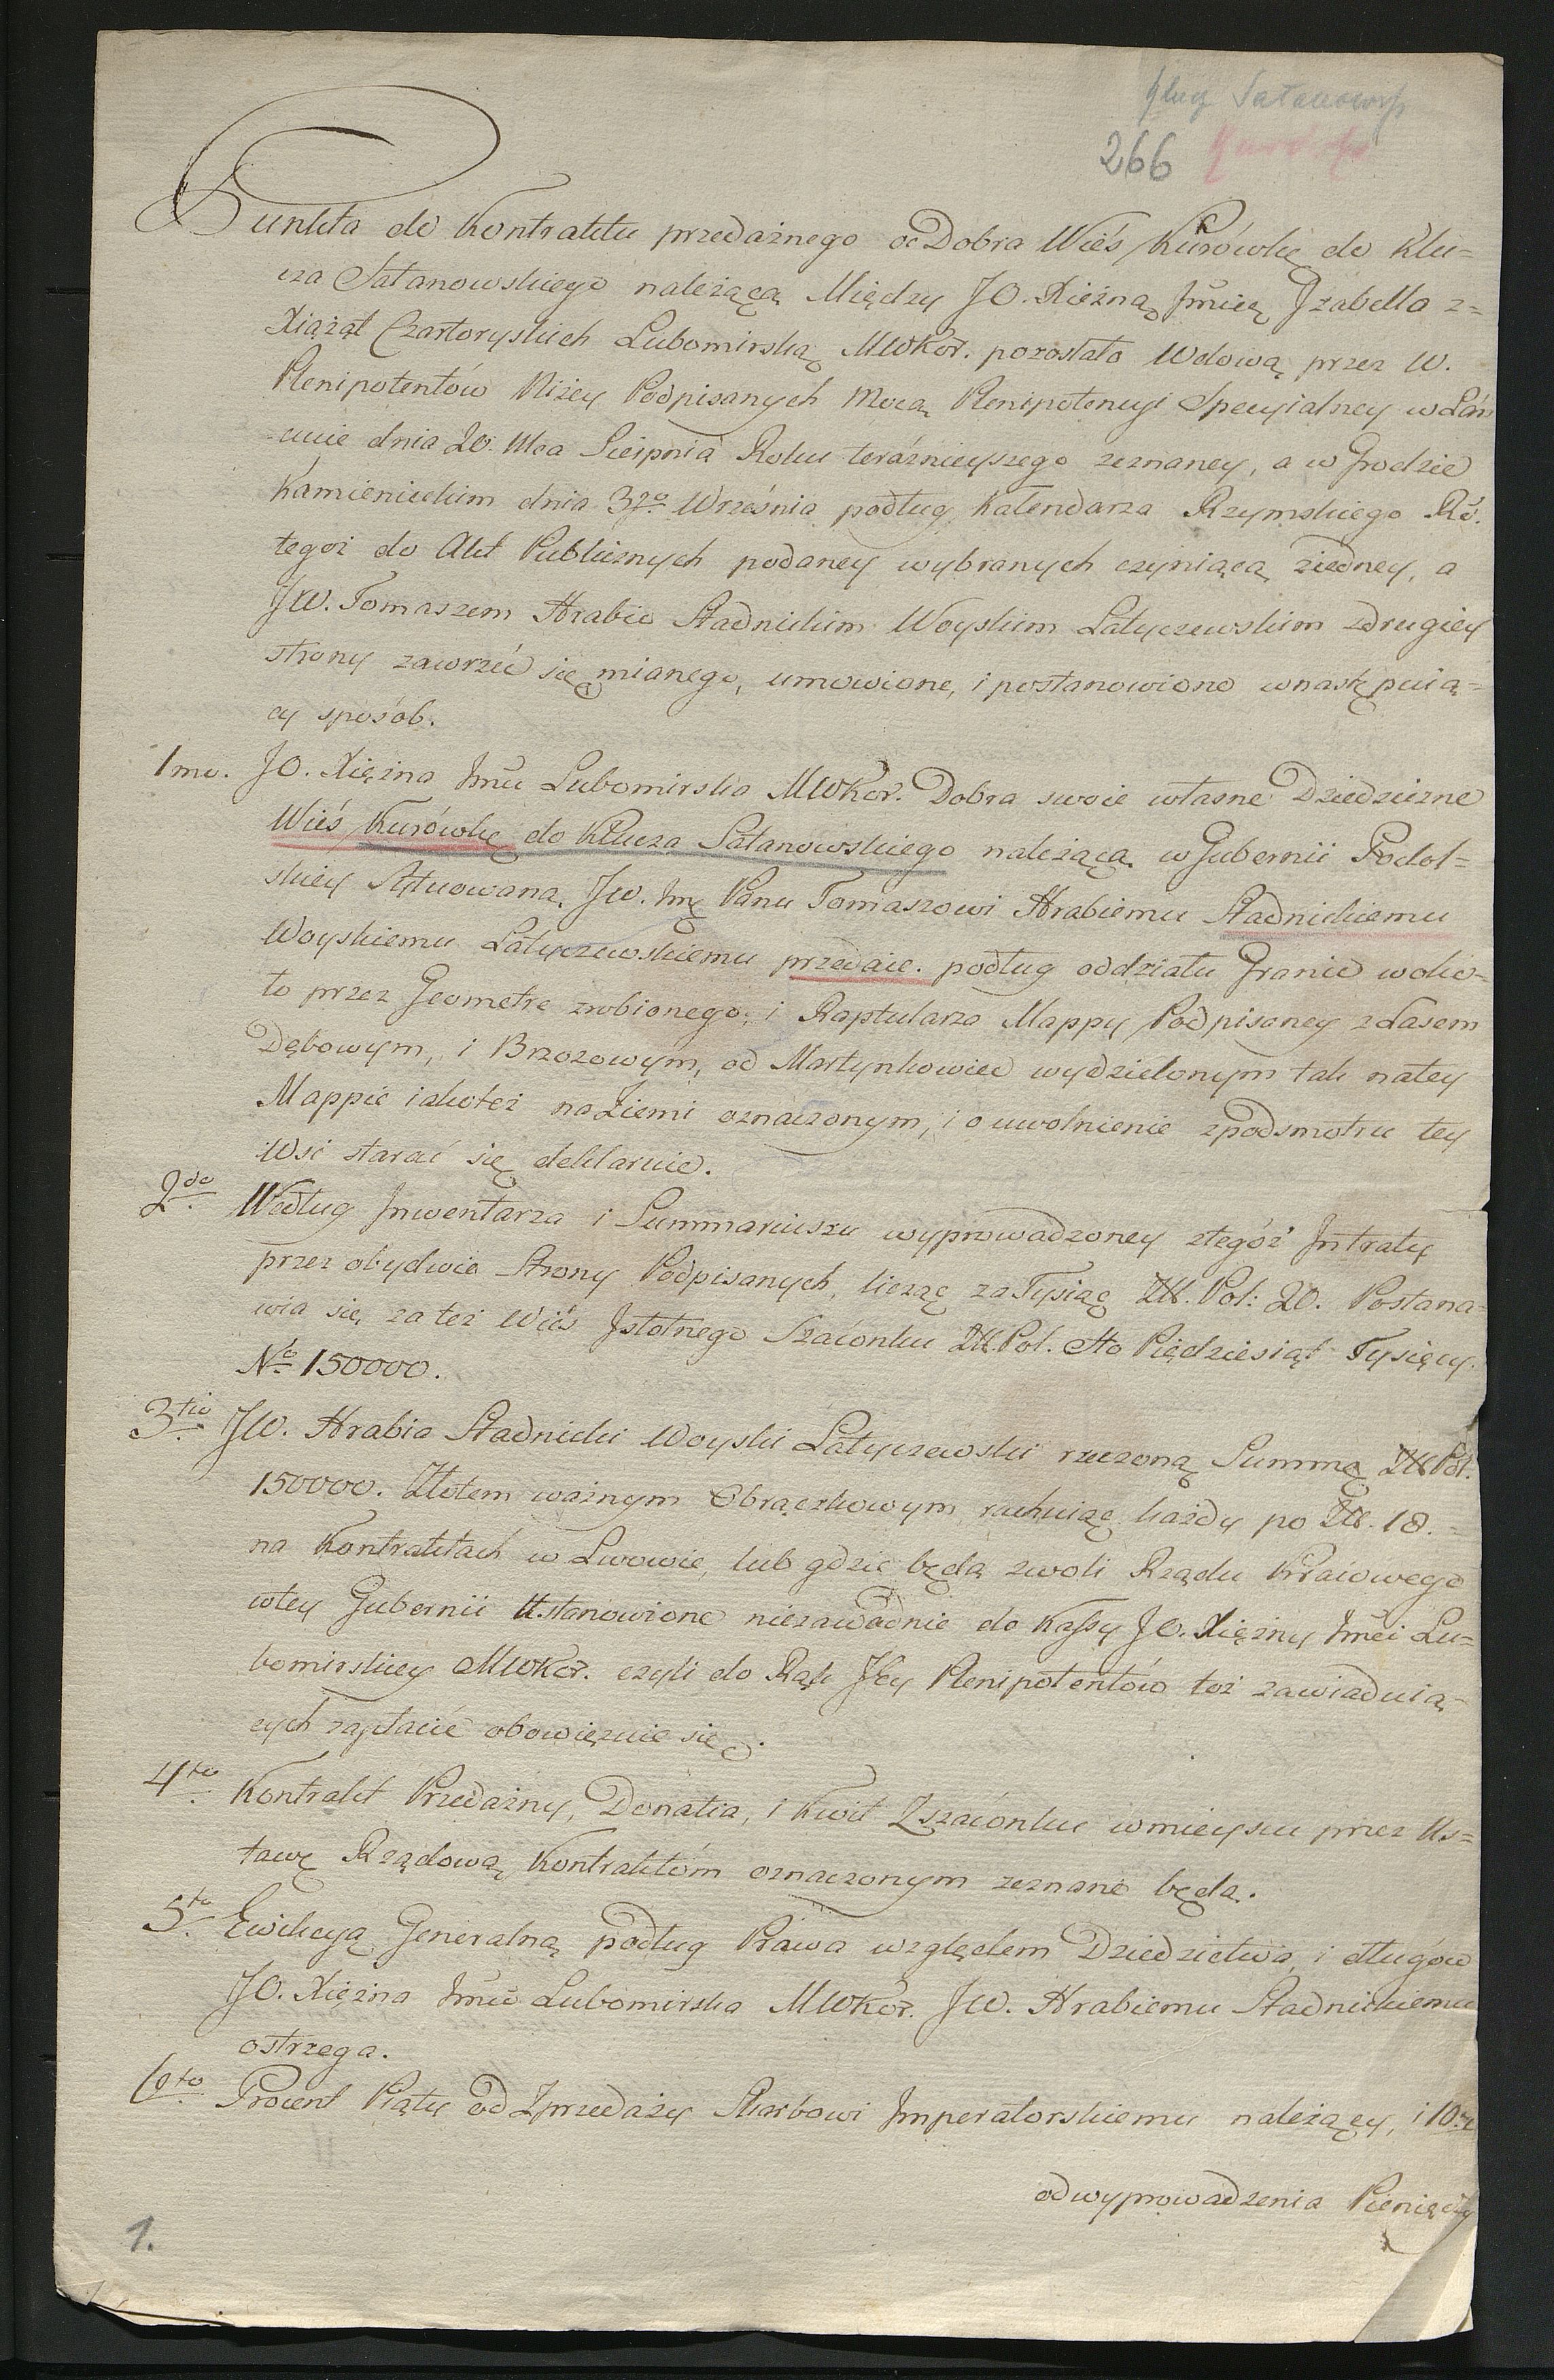 Satanows.
266
Punkta do Kontraktu przedażnego oc Dobra Wieś Kurówkę do Klu=
cza Satanowskiego należącą Między JO. Xiężną Jmcią Jzabellą z=
Xiążąt Czartoryskich Lubomirską MWKor. pozostałą Wdową przez W.
Plenipotentów Niżey Podpisanych Mocą Plenipotencyi Specyialney w Łań
cucie dnia 20. Mca Sierpnia Roku teraźnieyszego zeznaney, a w Grodzie
Kamienieckim dnia 3go. Września podług Kalendarza Rzymskiego Ro.
tegoż do Akt Publicznych podaney wybranych czyniącą ziedney, a
JW. Tomaszem Hrabią Stadnickim Woyskim Latyczewskim zdrugiey
strony zawrzeć się mianego, umowione, i postanowione wnastępuią=
cy sposób.
1mo. JO. Xiężna Jmć Lubomirska MWKor. Dobra swoie własne Dziedziczne
Wieś Kurówkę do Klucza Satanowskiego należącą w Gubernii Podol=
skiey Sytuowaną, JW. Jmę Panu Tomaszowi Hrabiemu Stadnickiemu
Woyskiemu Latyczewskiemu przedaie. podług oddziału Granic wokło=
to przez Geometrę zrobionego, i Raptularza Mappy Podpisaney zLasem
Dębowym, i Brzozowym, od Martynkowiec wydzielonym tak natey
Mappie iakoteż naZiemi oznaczonym, i o uwolnienie zpodsmotru tey
Wsi starać się deklaruie.
2do. Według Jnwentarza i Summaryuszu wyprowadzoney ztegóż Jntraty
przez obydwie Strony Podpisanych, licząc zaTysiąc Zł. Pol: 20. Postana=
wia się, za też Wieś Jstotnego Szacunku Zł.Pol. Sto Piędziesiąt Tysięcy.
No. 150000.
3tio. JW. Hrabia Stadnicki Woyski Latyczewski rzeczoną Summę Zł Pol.
150000. Złotem ważnym Obrączkowym rachuiąc każdy po Zł. 18.=
na Kontraktach w Lwowie, lub gdzie będą zwoli Rządu Kraiowego
wtey Gubernii Ustanowione niezawodnie do Kassy JO. Xiężny Jmci Lu=
bomirskiey MWKor. czyli do Rąk Jey Plenipotentów toż zawiaduią=
cych zapłacić obowięzuie się.
4to. Kontrakt Przedażny, Donatia, i Kwit Zszacunku wmieyscu przez Us=
tawę Rządową Kontraktóm oznaczonym zeznane będą.
5to. Ewikcyą Generalną podług Prawa względem Dziedzictwa, i długów
JO. Xiężna Jmć Lubomirska MWKor. JW. Hrabiemu Stadnickiemu
ostrzega.
6to. Procent Piąty od Zprzedaży Skarbowi Jmperatorskiemu należący, i 10ty
odwyprowadzenia Pieniędzy
1.